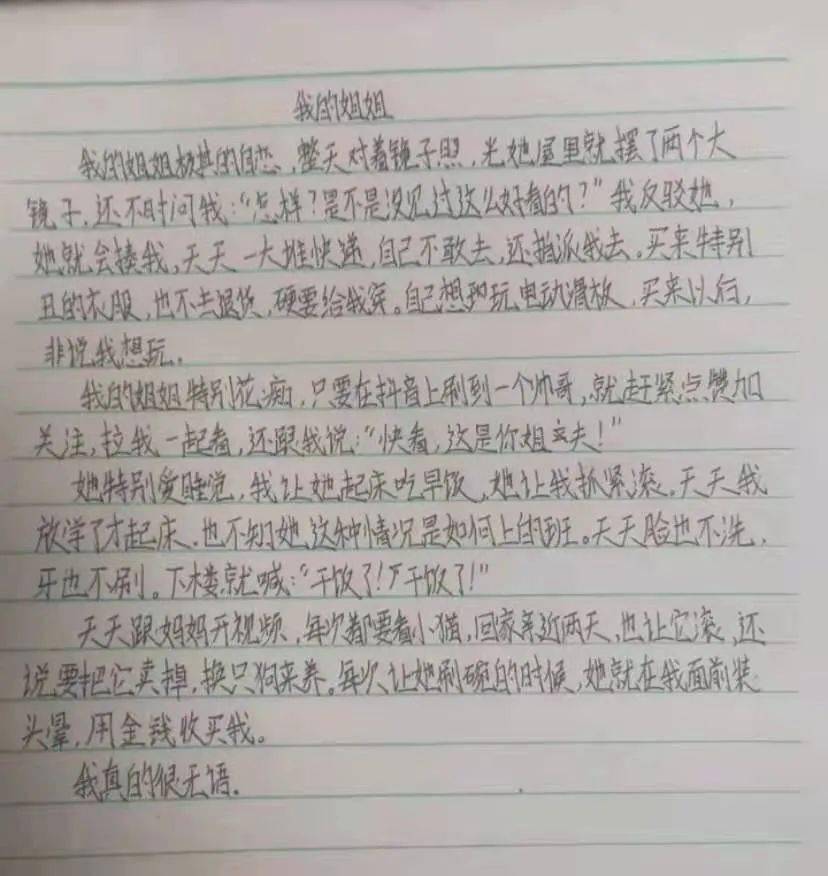 我的姐姐
我的姐姐极其的自恋,整天对着镜子照,光她屋里就摆了两个大
镜子,还不时问我:“怎样?是不是没见过这么好看的?”我反驳她,
她就会揍我,天天一大堆快递,自己不敢去,还指派我去。买来特别
丑的衣服,也不去退货,硬要给我穿。自己想玩电动滑板,买来以后,
非说我想玩。
我的姐姐特别花痴,只要在抖音上刷到一个帅哥,就赶紧点赞加
关注,拉我一起看,还跟我说:“快看,这是你姐夫!”
她特别爱睡觉,我让她起床吃早饭,她让我抓紧滚。天天我
放学了才起床,也不知她这种情况是如何上的班。天天脸也不洗,
牙也不刷。下楼就喊:“干饭了!干饭了!”
天天跟妈妈开视频,每次都要看小猫,回家亲近两天,也让它滚,还
说要把它卖掉,换只狗来养。每次让她刷碗的时候,她就在我面前装
头晕,用金钱收买我。
我真的很无语.